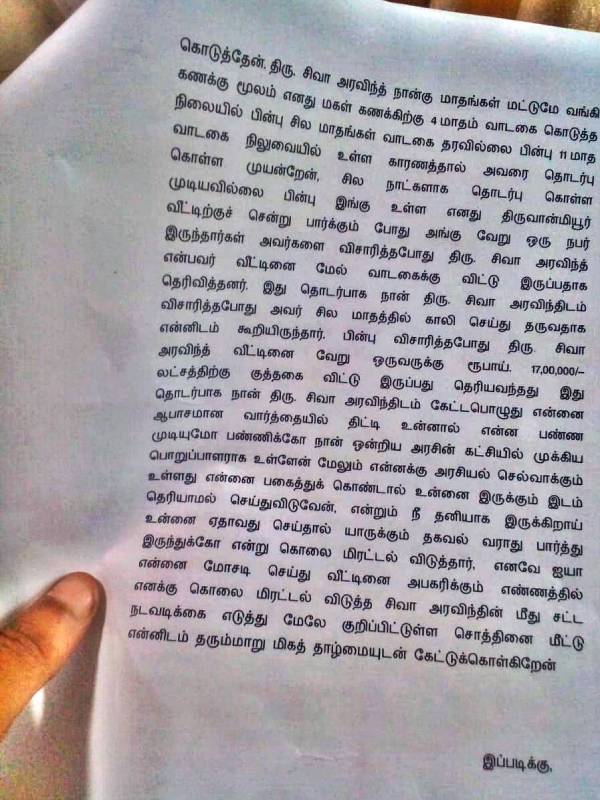 கொடுத்தேன். திரு. சிவா அரவிந்த் நான்கு மாதங்கள் மட்டுமே வங்கி
கணக்கு மூலம் எனது மகள் கணக்கிற்கு 4 மாதம் வாடகை கொடுத்த
நிலையில் பின்பு சில மாதங்கள் வாடகை தரவில்லை பின்பு 11 மாத
வாடகை நிலுவையில் உள்ள காரணத்தால் அவரை தொடர்பு
கொள்ள முயன்றேன், சில நாட்களாக தொடர்பு கொள்ள
முடியவில்லை பின்பு இங்கு உள்ள எனது திருவான்மியூர்
வீட்டிற்குச் சென்று பார்க்கும் போது அங்கு வேறு ஒரு நபர்
இருந்தார்கள் அவர்களை விசாரித்தபோது திரு. சிவா அரவிந்த்
என்பவர் வீட்டினை மேல் வாடகைக்கு விட்டு இருப்பதாக
தெரிவித்தனர். இது தொடர்பாக நான் திரு. சிவா அரவிந்திடம்
விசாரித்தபோது அவர் சில மாதத்தில் காலி செய்து தருவதாக
என்னிடம் கூறியிருந்தார், பின்பு விசாரித்தபோது திரு. சிவா
அரவிந்த் வீட்டினை வேறு ஒருவருக்கு ரூபாய். 17,00,000/–
லட்சத்திற்கு குத்தகை விட்டு இருப்பது தெரியவந்தது இது
தொடர்பாக நான் திரு. சிவா அரவிந்திடம் கேட்டபொழுது என்னை
ஆபாசமான வார்த்தையில் திட்டி உன்னால் என்ன பண்ண
முடியுமோ பண்ணிக்கோ நான் ஒன்றிய அரசின் கட்சியில் முக்கிய
பொறுப்பாளராக உள்ளேன் மேலும் என்னக்கு அரசியல் செல்வாக்கும்
உள்ளது என்னை பகைத்துக் கொண்டால் உன்னை இருக்கும் இடம்
தெரியாமல் செய்துவிடுவேன், என்றும் நீ தனியாக இருக்கிறாய்
உன்னை ஏதாவது செய்தால் யாருக்கும் தகவல் வராது பார்த்து
இருந்துக்கோ என்று கொலை மிரட்டல் விடுத்தார், எனவே ஐயா
என்னை மோசடி செய்து வீட்டினை அபகரிக்கும் எண்ணத்தில்
எனக்கு கொலை மிரட்டல் விடுத்த சிவா அரவிந்தின் மீது சட்ட
நடவடிக்கை எடுத்து மேலே குறிப்பிட்டுள்ள சொத்தினை மீட்டு
என்னிடம் தரும்மாறு மிகத் தாழ்மையுடன் கேட்டுக்கொள்கிறேன்
இப்படிக்கு,